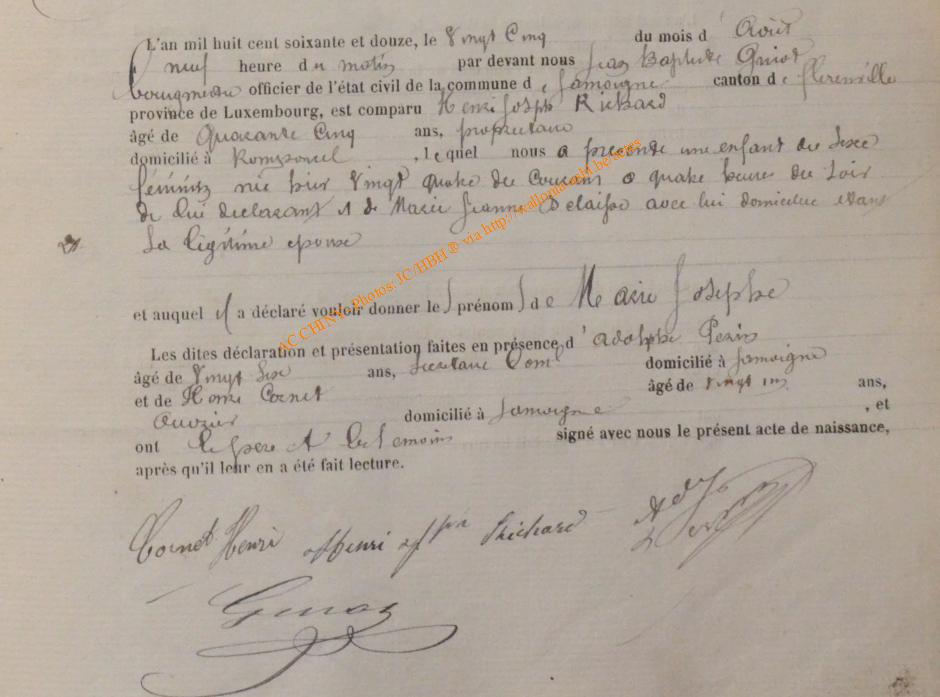 L'an mil huit cent soixante et douze, le Vingt Cinq du mois d' Août
à neuf heure du matin par devant nous Jean Baptiste
bourgmestre officier de l'état civil de la commune de Jamoigne canton de florenville
province de Luxembourg, est comparu Henri Joseph Richard
âgé de Quarante Cinq ans, propriétaire
domicilié à , lequel nous a présenté une enfant du sexe
féminin née hier Vingt quatre du Courant à quatre heures du Soir
de lui déclarant et de Marie Jeanne avec lui domiciliée étant
Sa légitime épouse
et auquel il a déclaré vouloir donner les prénoms de Marie Josephe
Les dites déclaration et présentation faites en présence d' Adolphe
âgé de Vingt Six ans, Secrétaire Coml domicilié à Jamoigne
et de Henri Cornet âgé de vingt ans,
Ouvrier domicilié à Jamoigne , et
ont le père et les témoins signé avec nous le présent acte de naissance,
après qu'il leur en a été fait lecture.
Cornet Henri Henri Jph Richard Ad
AC CHINY, Photos, JC/HBH ® via http://